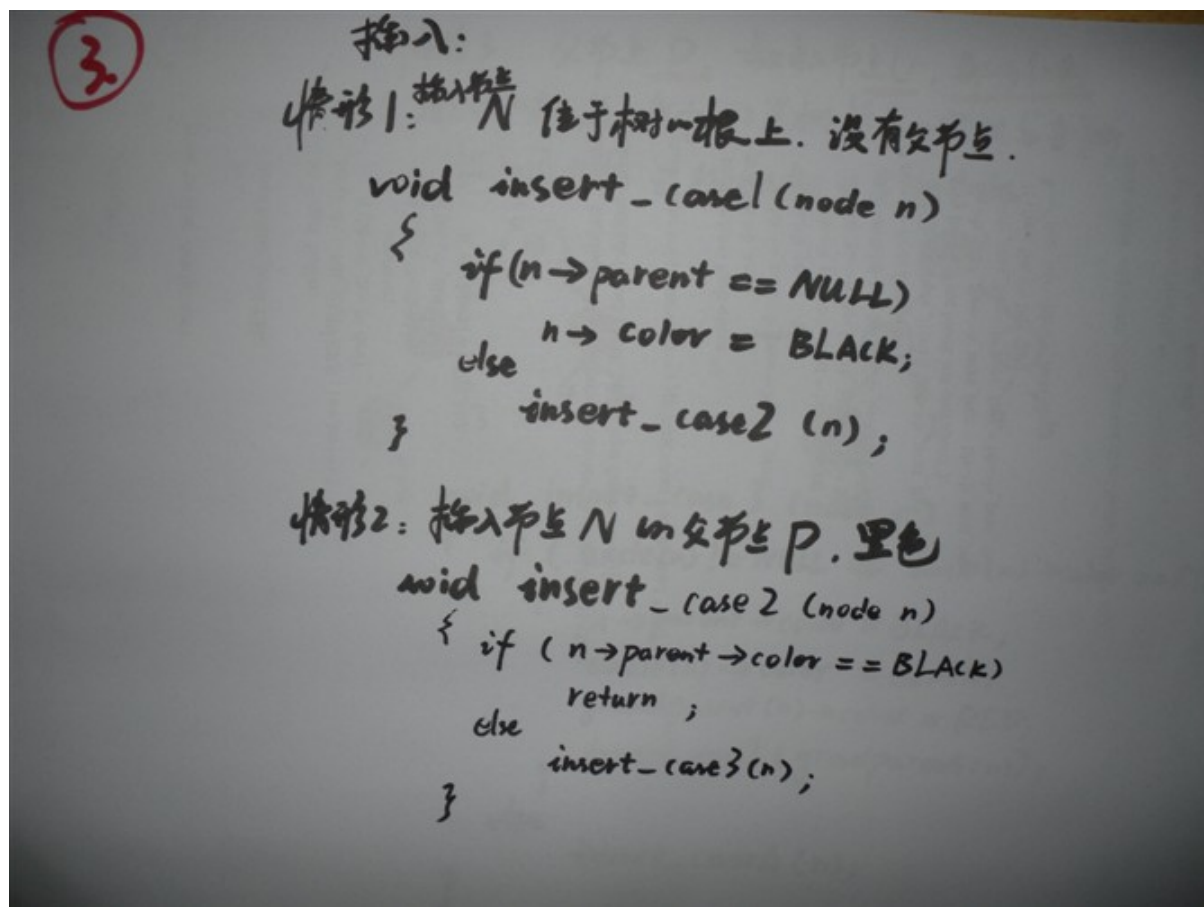 3.
插入:
情形1: 插入节点 N 位于树的根上. 没有父节点.
void insert_case1(node n)
{
if(n->parent == NULL)
n-> color = BLACK;
else
insert_case2 (n);
}
情形2: 插入节点 N 的父节点 P. 黑色
void insert_case2 (node n)
{ if (n->parent->color == BLACK)
return ;
else
insert_case3(n);
}